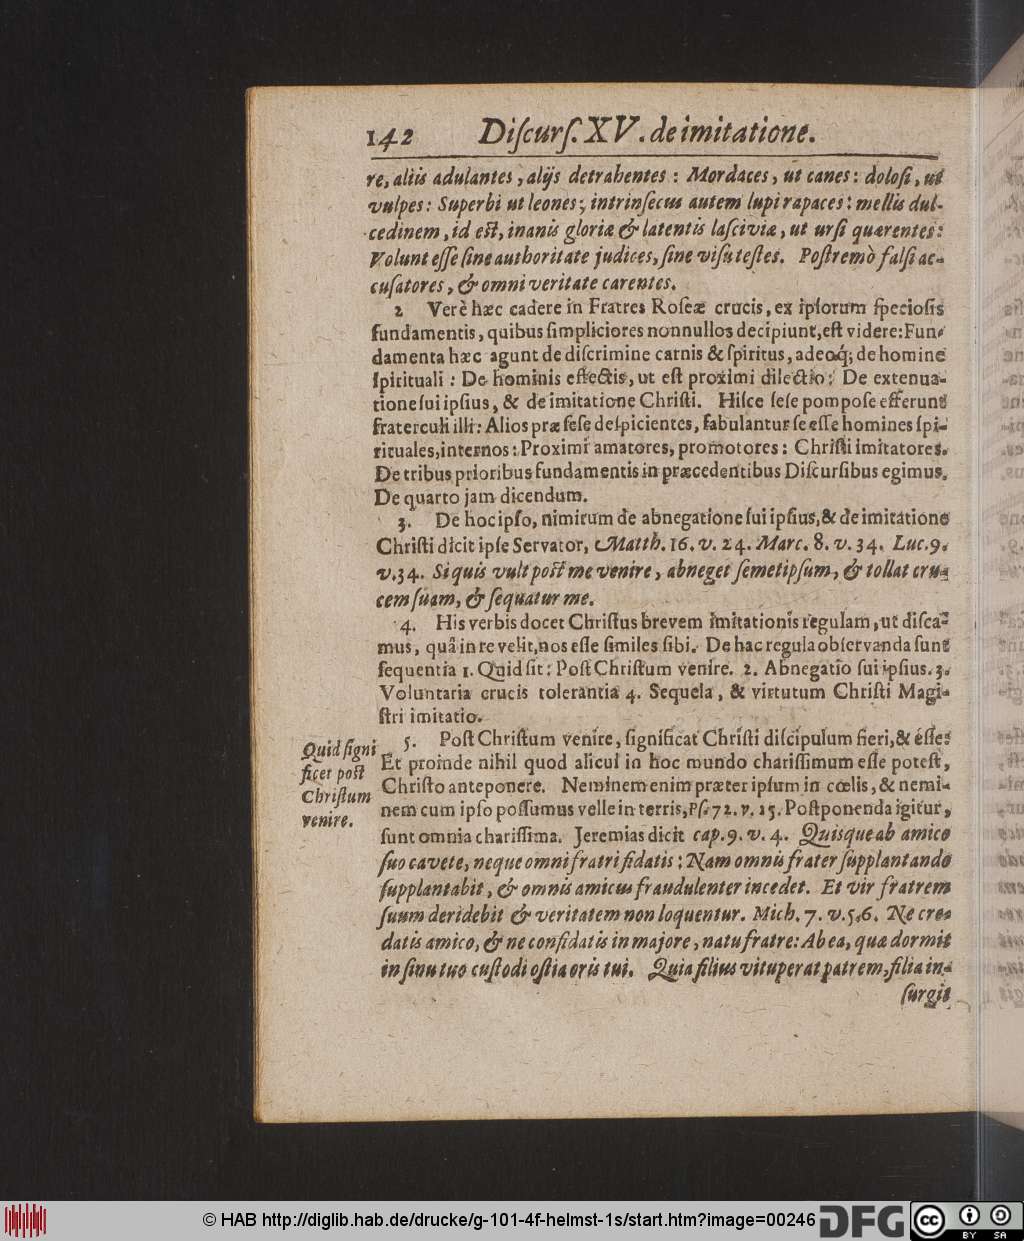 142 Diſcurſ. XV. de imitatione.
re, aliis adulantes, alijs detrahentes : Mordaces, ut canes : doloſi, ut
vulpes : Superbi ut leones ; intrinſecus autem lupi rapaces : mellis dul-
cedinem, id eſt, inanis gloriæ & latentis laſciviæ, ut urſi quærentes :
Volunt eſſe ſine authoritate judices, ſine viſu teſtes. Poſtremò falſi ac-
cuſatores, & omni veritate carentes.
2 Verè hæc cadere in Fratres Roſeæ crucis, ex ipſorum ſpecioſis
fundamentis, quibus ſimpliciores nonnullos decipiunt, eſt videre: Fun-
damenta hæc agunt de diſcrimine carnis & ſpiritus, adeoq́; de homine
ſpirituali : De hominis effectis, ut eſt proximi dilectio : De extenua-
tione ſui ipſius, & de imitatione Chriſti. Hiſce ſeſe pompoſe efferunt
fraterculi illi : Alios præ ſeſe deſpicientes, fabulantur ſe eſſe homines ſpi-
rituales, internos : Proximi amatores, promotores : Chriſti imitatores.
De tribus prioribus fundamentis in præcedentibus Diſcurſibus egimus.
De quarto jam dicendum.
3. De hoc ipſo, nimirum de abnegatione ſui ipſius, & de imitatione
Chriſti dicit ipſe Servator, Matth. 16. v. 24. Marc. 8. v. 34. Luc. 9.
v. 34. Si quis vult poſt me venire, abneget ſemetipſum, & tollat cru-
cem ſuam, & ſequatur me.
4. His verbis docet Chriſtus brevem imitationis regulam, ut diſca-
mus, quâ in re velit, nos eſſe ſimiles ſibi. De hac regula obſervanda ſunt
ſequentia 1. Quid ſit : Poſt Chriſtum venire. 2. Abnegatio ſui ipſius. 3.
Voluntaria crucis tolerantia 4. Sequela, & virtutum Chriſti Magi-
ſtri imitatio.
Quid ſigni
ficet poſt
Chriſtum
venire.
5. Poſt Chriſtum venire, ſignificat Chriſti diſcipulum fieri, & eſſe :
Et proinde nihil quod alicui in hoc mundo chariſſimum eſſe poteſt,
Chriſto anteponere. Neminem enim præter ipſum in cœlis, & nemi-
nem cum ipſo poſſumus velle in terris, Pſ. 72. v. 25. Poſtponenda igitur,
ſunt omnia chariſſima. Jeremias dicit cap. 9. v. 4. Quisque ab amico
ſuo cavete, neque omni fratri fidatis : Nam omnis frater ſupplantando
ſupplantabit, & omnis amicus fraudulenter incedet. Et vir fratrem
ſuum deridebit & veritatem non loquentur. Mich. 7. v. 5.6. Ne cre-
datis amico, & ne confidatis in majore, natu fratre : Ab ea, quæ dormit
in ſinu tuo cuſtodi oſtia oris tui. Quia filius vituperat patrem, filia in-
ſurgit
© HAB http://diglib.hab.de/drucke/g-101-4f-helmst-1s/start.htm?image=00246
DFG
CC BY SA